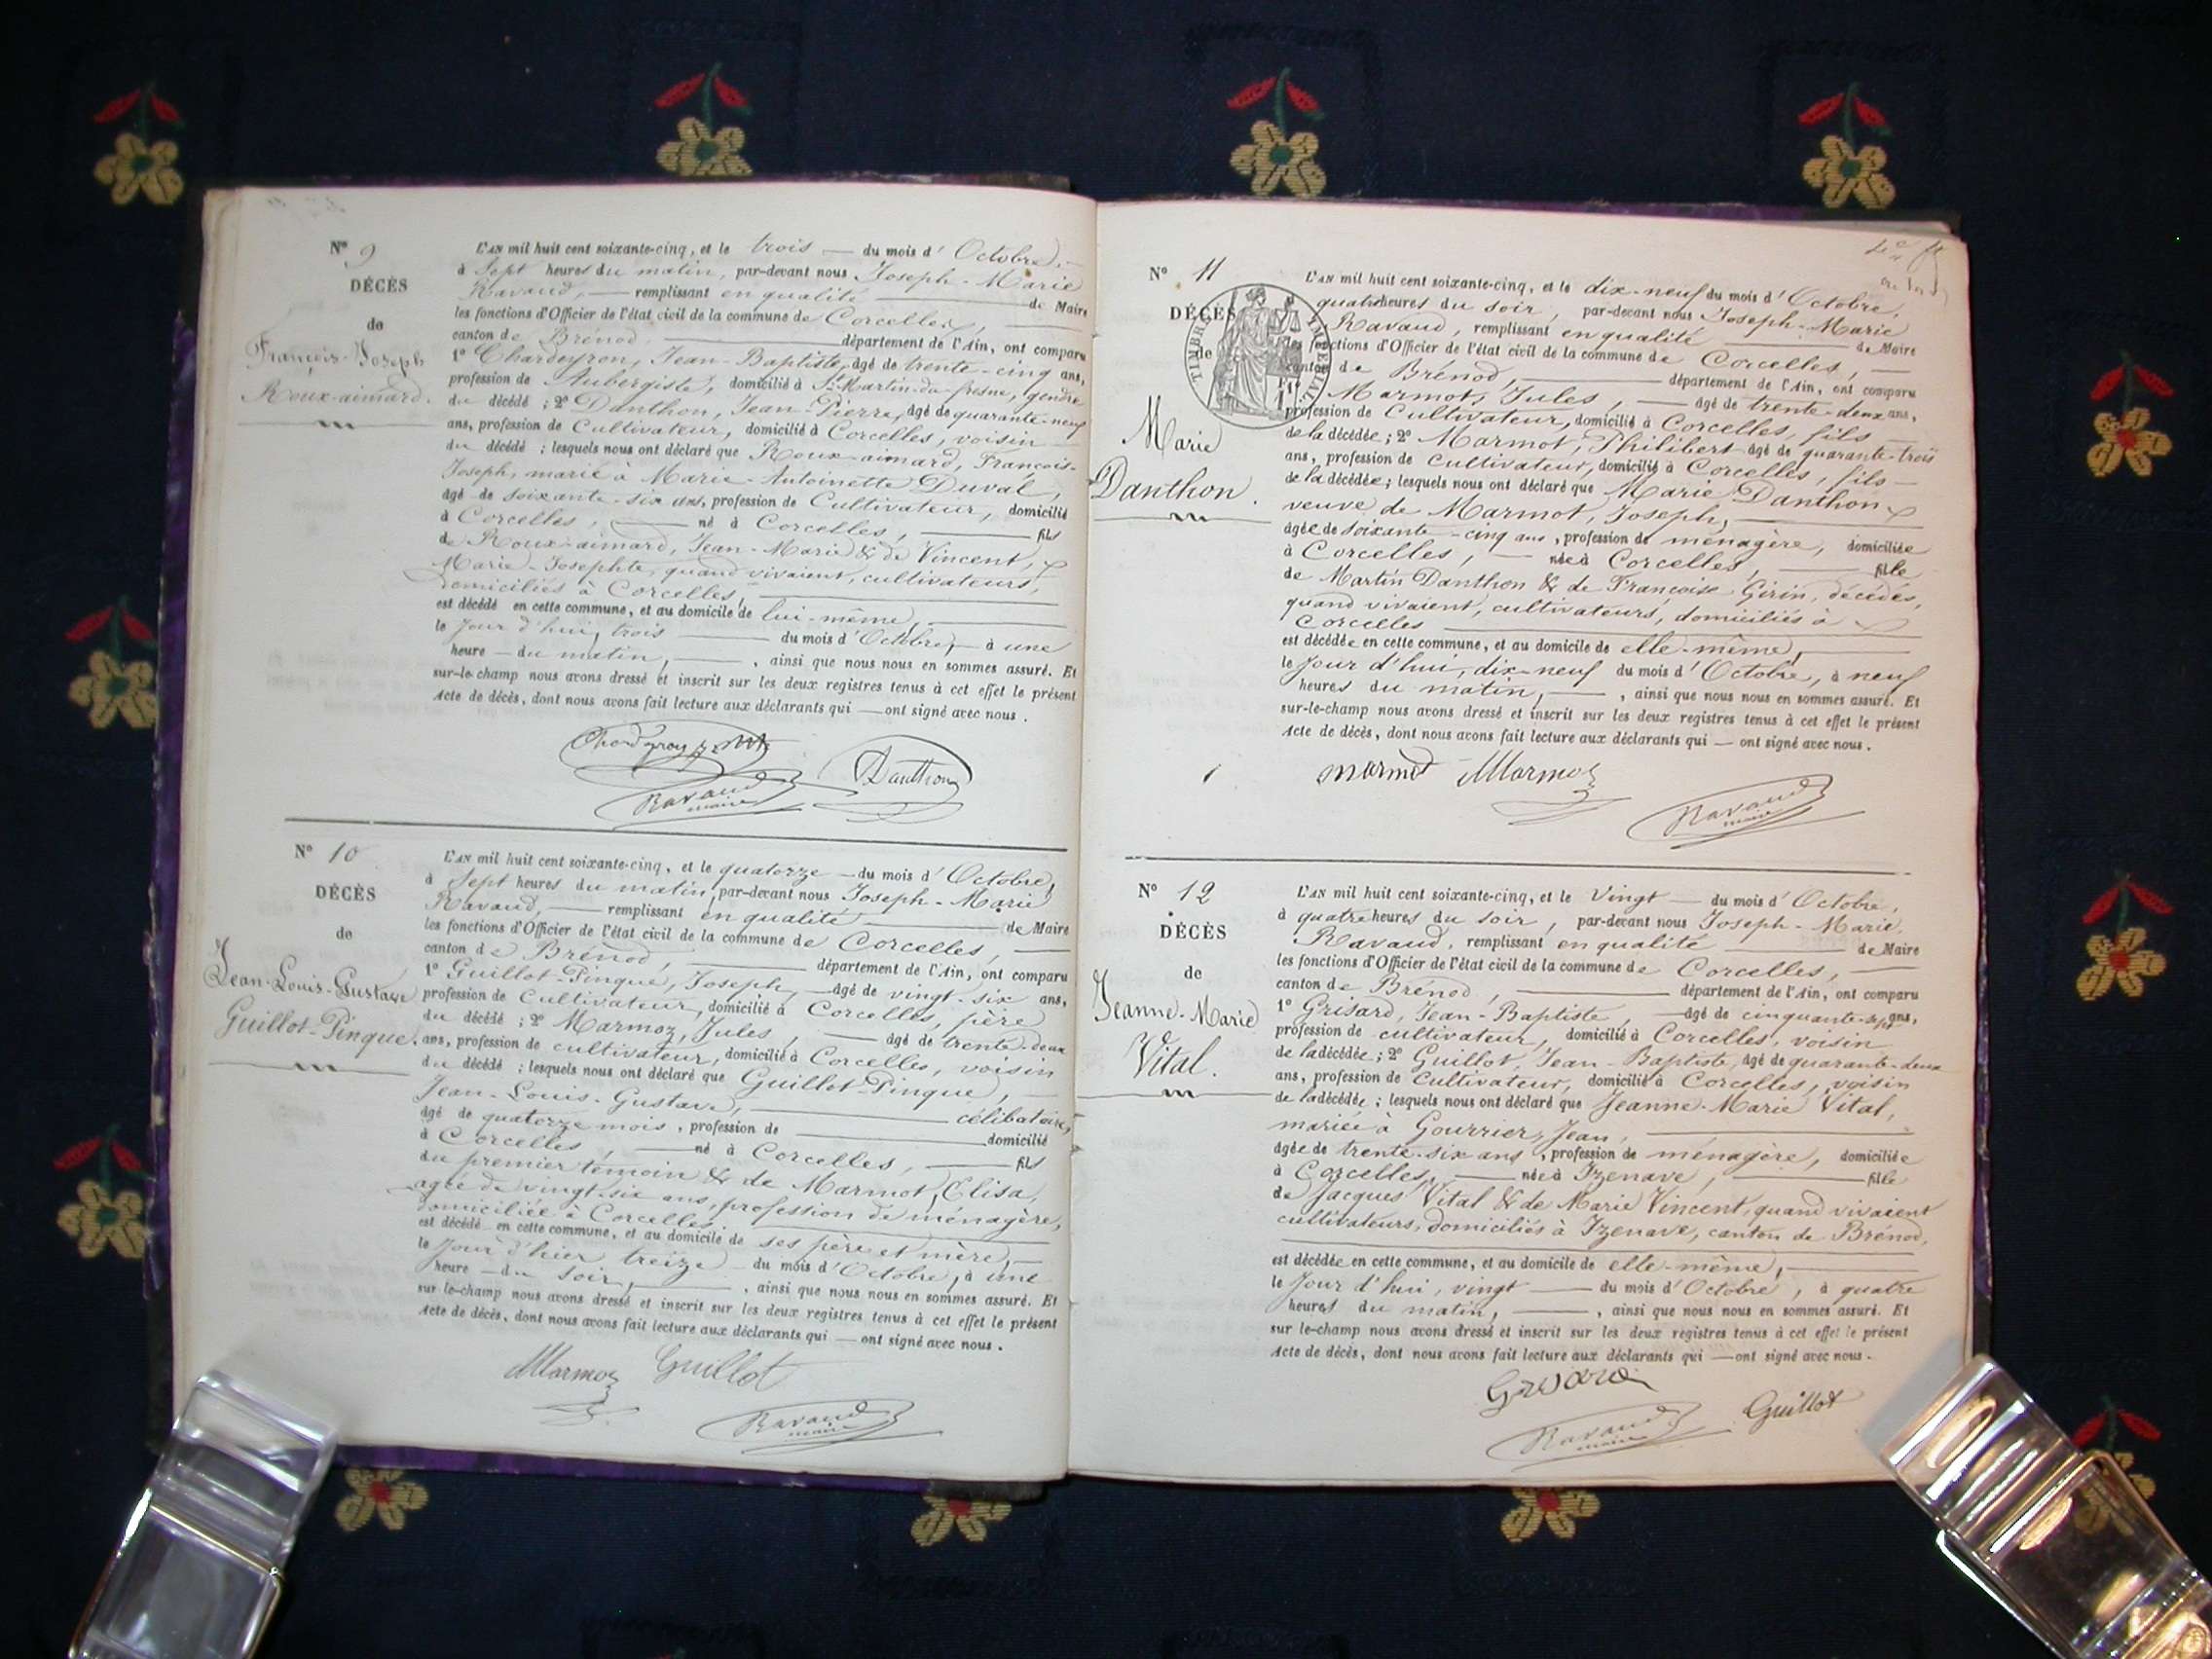 N° 9
DÉCÈS
de
François-Joseph
Roux-aimard.
L'AN mil huit cent soixante-cinq, et le trois — du mois d'Octobre, —
à Sept heures du matin, par-devant nous Joseph-Marie
Ravaud, — remplissant en qualité — de Maire
les fonctions d'Officier de l'état civil de la commune de Corcelles, —
canton de Brénod, — département de l'Ain, ont comparu
1° Chardeyron, Jean-Baptiste, âgé de trente-cinq ans,
profession de Aubergiste, domicilié à St Martin-du-fresne, gendre
du décédé ; 2° Danthon, Jean-Pierre, âgé de quarante-neuf
ans, profession de Cultivateur, domicilié à Corcelles, voisin
du décédé ; lesquels nous ont déclaré que Roux-aimard, François-
Joseph, marié à Marie-Antoinette Duval,
âgé de soixante-six ans, profession de Cultivateur, domicilié
à Corcelles, — né à Corcelles, — fils
de Roux-aimard, Jean-Marie & de Vincent,
Marie-Josephte, quand vivaient, cultivateurs,
domiciliés à Corcelles, —
est décédé en cette commune, et au domicile de lui-même, —
le Jour d'hui, trois — du mois d'Octobre, — à une
heure — du matin, — , ainsi que nous nous en sommes assuré. Et
sur-le-champ nous avons dressé et inscrit sur les deux registres tenus à cet effet le présent
Acte de décès, dont nous avons fait lecture aux déclarants qui — ont signé avec nous.
Danthon
Ravaud
maire
N° 10
DÉCÈS
de
Jean-Louis-Gustave
Guillot-Pingue.
L'AN mil huit cent soixante-cinq, et le quatorze — du mois d'Octobre,
à Sept heures du matin, par-devant nous Joseph-Marie
Ravaud, — remplissant en qualité — de Maire
les fonctions d'Officier de l'état civil de la commune de Corcelles, —
canton de Brénod, — département de l'Ain, ont comparu
1° Guillot-Pingue, Joseph, — âgé de vingt-six ans,
profession de Cultivateur, domicilié à Corcelles, père
du décédé ; 2° Marmoz, Jules, — âgé de trente-deux
ans, profession de cultivateur, domicilié à Corcelles, voisin
du décédé ; lesquels nous ont déclaré que Guillot Pingue, —
Jean-Louis-Gustave, — célibataire,
âgé de quatorze mois, profession de — domicilié
à Corcelles, — né à Corcelles, — fils
du premier témoin & de Marmot, Elisa,
agée de vingt-six ans, profession de ménagère,
domiciliée à Corcelles, —
est décédé en cette commune, et au domicile de ses père et mère, —
le Jour d'hier treize — du mois d'Octobre, à une
heure — du soir, — , ainsi que nous nous en sommes assuré. Et
sur-le-champ nous avons dressé et inscrit sur les deux registres tenus à cet effet le présent
Acte de décès, dont nous avons fait lecture aux déclarants qui — ont signé avec nous.
Marmoz Guillot
Ravaud
maire
N° 11
DÉCÈS
de
TIMBRE IMPERIAL
Marie
Danthon.
L'AN mil huit cent soixante-cinq, et le dix-neuf du mois d'Octobre,
quatre heures du soir, par-devant nous Joseph-Marie
Ravaud, remplissant en qualité — de Maire
les fonctions d'Officier de l'état civil de la commune de Corcelles, —
canton de Brénod, — département de l'Ain, ont comparu
1° Marmot, Jules, — âgé de trente-deux ans,
profession de Cultivateur, domicilié à Corcelles, fils —
de la décédée ; 2° Marmot, Philibert âgé de quarante-trois
ans, profession de cultivateur, domicilié à Corcelles, fils —
de la décédée ; lesquels nous ont déclaré que Marie Danthon
veuve de Marmot, Joseph, —
âgée de soixante-cinq ans, profession de ménagère, domiciliée
à Corcelles, — née à Corcelles, — fille
de Martin Danthon & de Françoise Girin, décédés,
quand vivaient, cultivateurs, domiciliés à
Corcelles —
est décédée en cette commune, et au domicile de elle-même, —
le Jour d'hui, dix-neuf du mois d'Octobre, à neuf
heures du matin, — , ainsi que nous nous en sommes assuré. Et
sur-le-champ nous avons dressé et inscrit sur les deux registres tenus à cet effet le présent
Acte de décès, dont nous avons fait lecture aux déclarants qui — ont signé avec nous.
Marmot Marmoz
Ravaud
maire
N° 12
DÉCÈS
de
Jeanne-Marie
Vital.
L'AN mil huit cent soixante-cinq, et le Vingt — du mois d'Octobre,
à quatre heures du soir, par-devant nous Joseph-Marie
Ravaud, remplissant en qualité — de Maire
les fonctions d'Officier de l'état civil de la commune de Corcelles, —
canton de Brénod, — département de l'Ain, ont comparu
1° Grisard, Jean-Baptiste, — âgé de cinquante-sept ans,
profession de cultivateur, domicilié à Corcelles, voisin
de la décédée ; 2° Guillot, Jean-Baptiste, âgé de quarante-deux
ans, profession de Cultivateur, domicilié à Corcelles, voisin
de la décédée ; lesquels nous ont déclaré que Jeanne-Marie Vital,
mariée à Gourrier, Jean, —
âgée de trente-six ans, profession de ménagère, domiciliée
à Corcelles, — née à Izenave, — fille
de Jacques Vital & de Marie Vincent, quand vivaient
cultivateurs, domiciliés à Izenave, canton de Brénod,
est décédée en cette commune, et au domicile de elle-même, —
le Jour d'hui, vingt — du mois d'Octobre, à quatre
heures du matin, — , ainsi que nous nous en sommes assuré. Et
sur le-champ nous avons dressé et inscrit sur les deux registres tenus à cet effet le présent
Acte de décès, dont nous avons fait lecture aux déclarants qui — ont signé avec nous.
Grisard
Guillot
Ravaud
maire